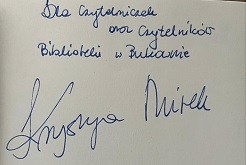 Dla Czytelniczek
oraz Czytelników
Biblioteki w Bukownie
Krystyna Mirek